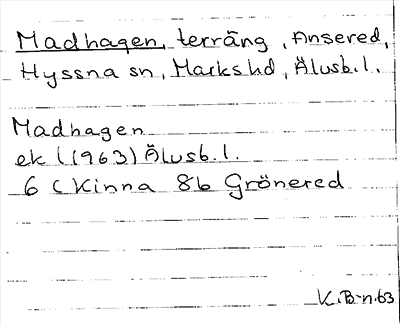 Madhagen, terräng, Ansered,
Hyssna sn, Marks hd, Älvsb.l.
Madhagen
ek (1963) Älvsb.l.
6 C Kinna 8b Grönered
K.B-n.63